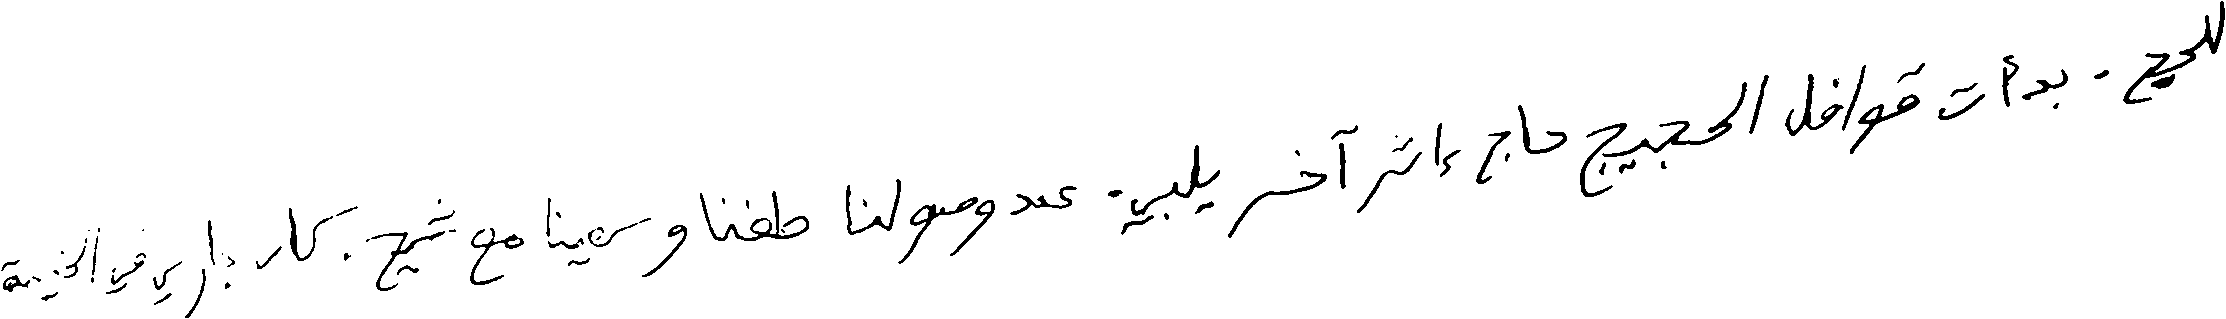 للحج. بدأت قوافل الحجيج حاج إثر آخر يلبي. عند وصولنا طفنا وسعينا مع شيخ. كان جاري في الخيمة